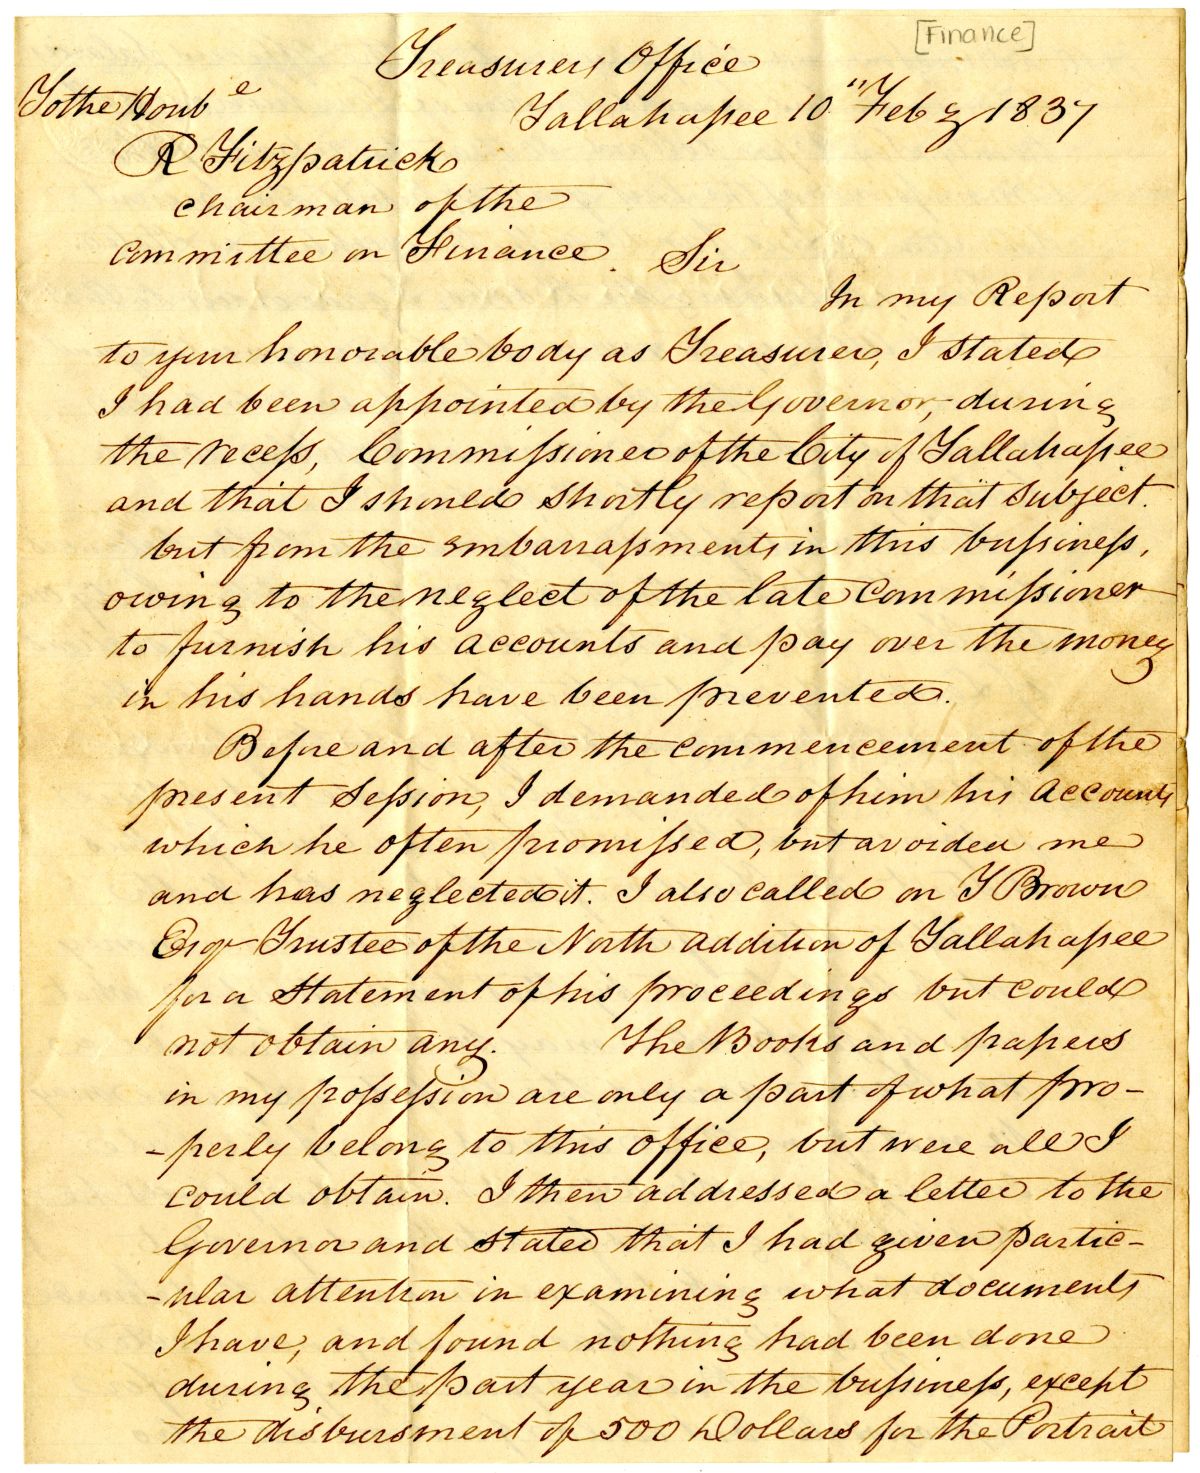 [Finance]
Treasurers Office
Tallahassee 10" Feby 1837
To the Honbe
R Fitzpatrick
chairman of the
committee on Finance. Sir
In my Report
to your honorable body as Treasurer, I stated
I had been appointed by the Governor, during
the recess, Commissioner of the City of Tallahassee
and that I should shortly report on that subject.
but from the embarrassments in this bussiness,
owing to the neglect of the late Commissioner
to furnish his accounts and pay over the money
in his hands have been prevented.
Before and after the commencement of the
present Session, I demanded of him his accounts
which he often promissed, but avoided me
and has neglected it. I also called on T Brown
Esqr Trustee of the North addition of Tallahassee
for a Statement of his proceedings but could
not obtain any. The Books and papers
in my possession are only a part of what pro-
-perly belong to this office, but were all I
could obtain. I then addressed a letter to the
Governor and stated that I had given partic-
-ular attention in examining what documents
I have, and found nothing had been done
during the past year in the bussiness, except
the disbursment of 500 Dollars for the Portrait